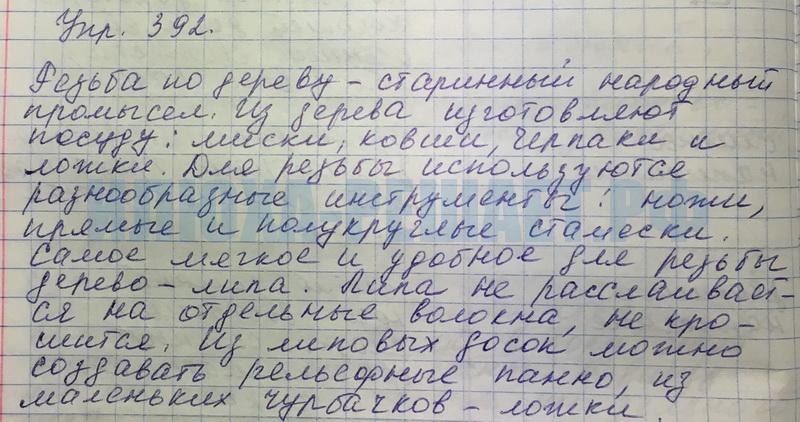 Упр. 392.
Резьба по дереву - старинный народный
промысел. Из дерева изготовляют
посуду: миски, ковши, черпаки и
ложки. Для резьбы используются
разнообразные инструменты: ножи,
прямые и полукруглые стамески.
Самое мягкое и удобное для резьбы
дерево - липа. Липа не расслаивает-
ся на отдельные волокна, не кро-
шится. Из липовых досок можно
создавать рельефные панно, из
маленьких чурбачков - ложки.